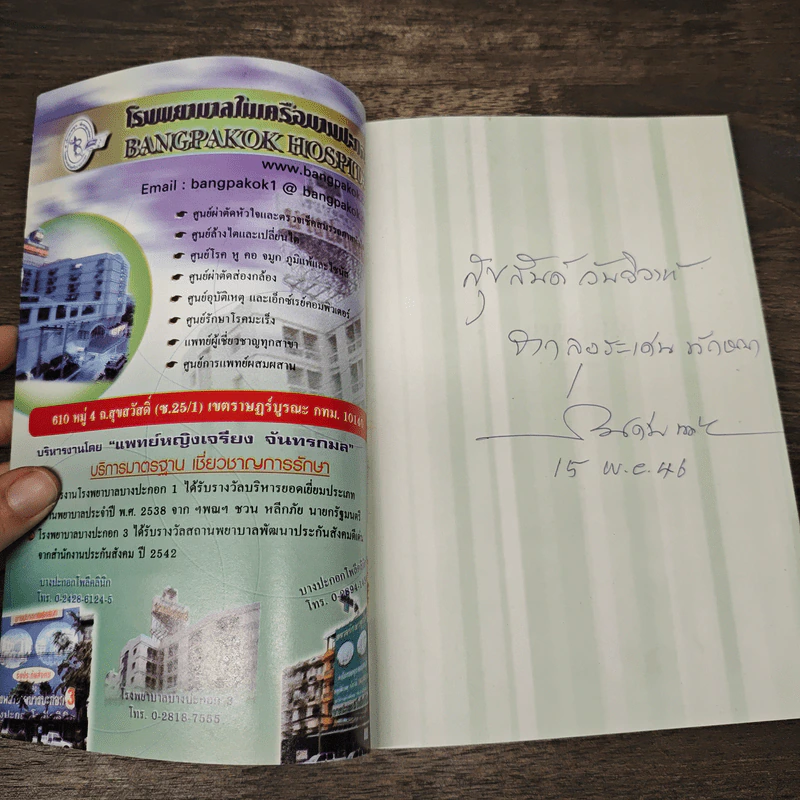 โรงพยาบาลในเครือบางปะ
BANGPAKOK HOSPIT
www.bangpakok
Email : bangpakok1 @ bangpakok
ศูนย์ผ่าตัดหัวใจและตรวจเช็คสมรรถภาพหัวใจ
ศูนย์ล้างไตและเปลี่ยนไต
ศูนย์โรค หู คอ จมูก ภูมิแพ้และไซนัส
ศูนย์ผ่าตัดส่องกล้อง
ศูนย์อุบัติเหตุ และเอ็กซ์เรย์คอมพิวเตอร์
ศูนย์รักษาโรคมะเร็ง
แพทย์ผู้เชี่ยวชาญทุกสาขา
ศูนย์การแพทย์ผสมผสาน
610 หมู่ 4 ถ.สุขสวัสดิ์ (ซ.25/1) เขตราษฎร์บูรณะ กทม. 1014
บริหารงานโดย "แพทย์หญิงเจรียง จันทรกมล"
บริการมาตรฐาน เชี่ยวชาญการรักษา
งานโรงพยาบาลบางปะกอก 1 ได้รับรางวัลบริหารยอดเยี่ยมประเภท
พยาบาลประจำปี พ.ศ. 2538 จาก ฯพณฯ ชวน หลีกภัย นายกรัฐมนตรี
โรงพยาบาลบางปะกอก 3 ได้รับรางวัลสถานพยาบาลพัฒนาประกันสังคมดีเด่น
จากสำนักงานประกันสังคม ปี 2542
บางปะกอกโพลีคลินิก
โทร. 0-2428-6124-5
บางปะกอกโพลีคลินิก
โทร. 0-2894-
โรงพยาบาลบางปะกอก 3
โทร. 0-2818-7555
สุขสันต์
จาก
15 พ.ย. 46